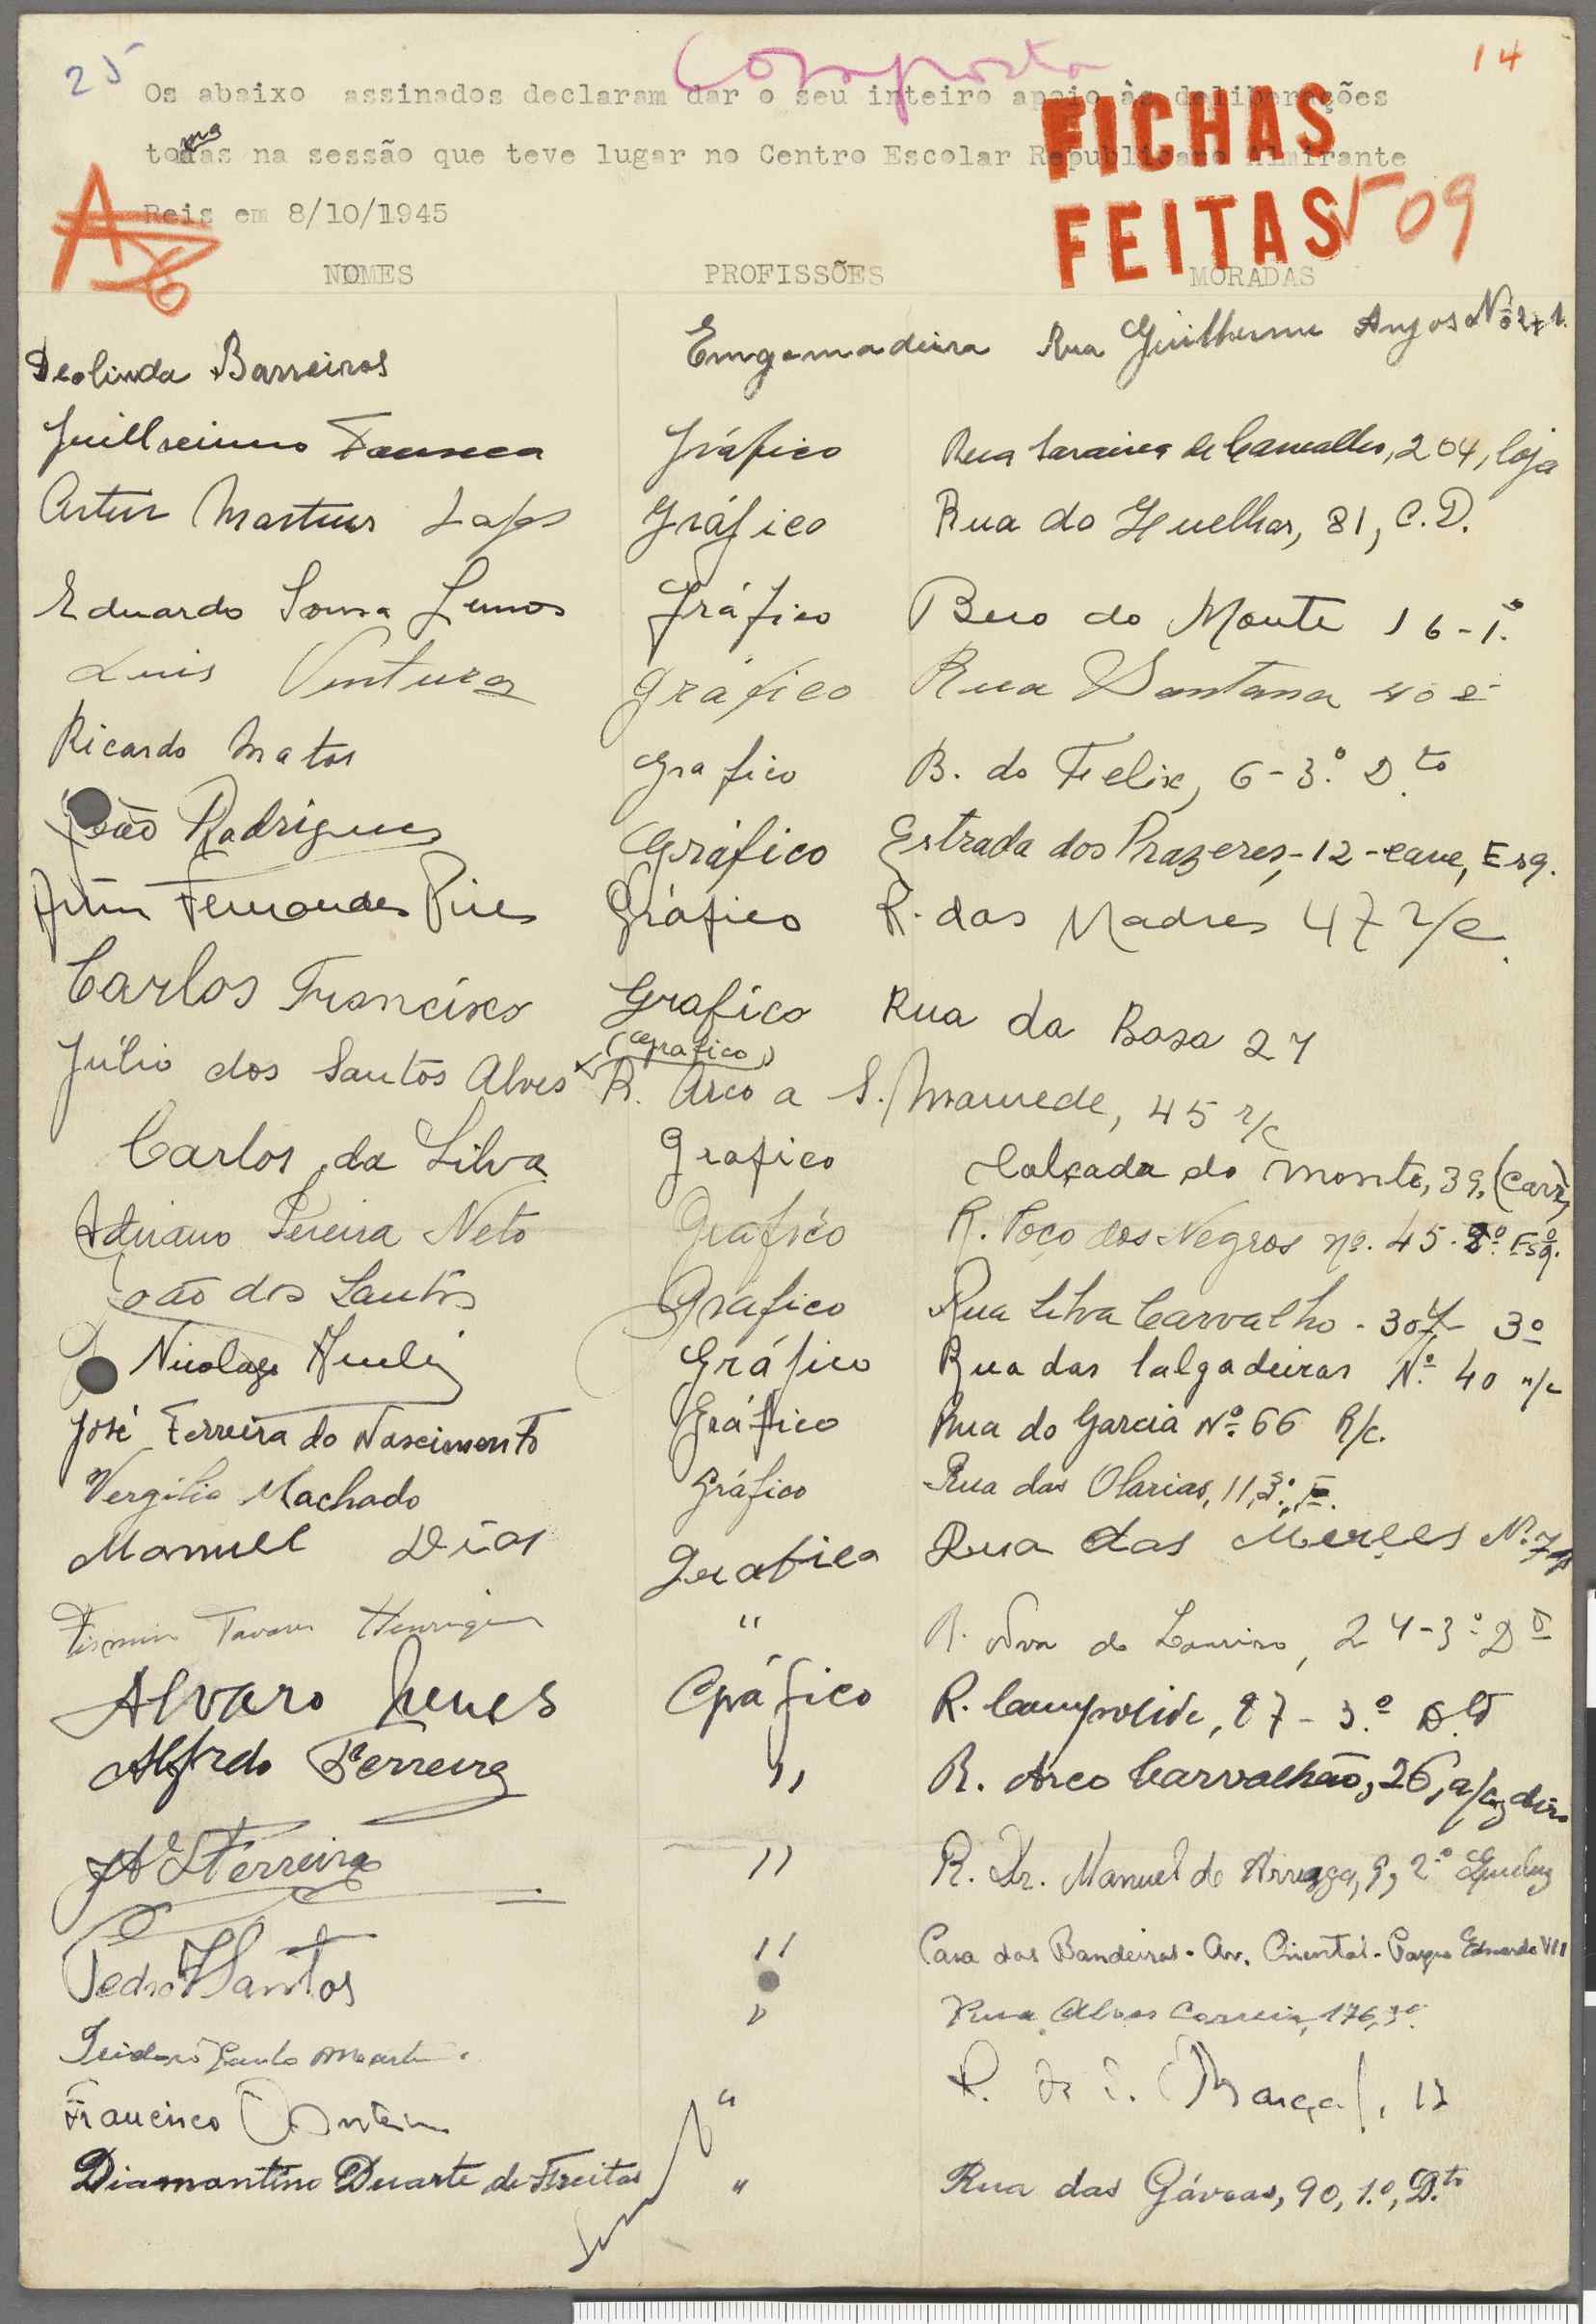 25
Composta
14
Os abaixo assinados declaram dar o seu inteiro apoio às deliberações
tomadas na sessão que teve lugar no Centro Escolar Republicano Almirante
Reis em 8/10/1945
FICHAS
FEITAS
509
A
6
NOMES PROFISSÕES MORADAS
Deolinda Barreiros Emgomadeira Rua Guilherme Anjos Nº
Guilhermino Fonseca Gráfico Rua Saraiva de Carvalho, 204, loja
Artur Martins Gráfico Rua do Guelhas, 81, C.D.
Eduardo Sousa Lemos Gráfico Beco do Monte 16-1.º
Luis Ventura Gráfico Rua Santana
Ricardo Matos Grafico B. do Felix, 6-3.º D.to
João Rodrigues Gráfico Estrada dos Prazeres,-12-cave, Esq.
Fernandes Pires Gráfico R. das Madres 47 r/c
Carlos Francisco Grafico Rua da Rosa 27
(Grafico)
Júlio dos Santos Alves R. Arco a S. Mamede, 45 r/c
Carlos da Silva Grafico Calçada do Monte, 39,
Adriano Pereira Neto Grafico R. Poço dos Negros nº. 45-2º. Esq.
João dos Santos Gráfico Rua Silva Carvalho - 307 3º
Nicolago Gráfico Rua das Salgadeiras Nº. 40 r/c
José Ferreira do Nascimento Gráfico Rua do Garcia Nº. 66 R/c.
Vergilio Machado Gráfico Rua das Olarias, 11, 3.º,
Manuel Dias Grafico Rua das Merçes Nº.
Firmin Tavares Henriques " R. Nva do Loureiro, 24-3º Dtº
Alvaro Nunes Gráfico R. Campolide, 27-3.º D.to
Alfredo Ferreira " R. Arco Carvalhão, 26,
Ferreira " R. Dr. Manuel de Arriaga, 9, 2.º
Pedro Santos " Casa das Bandeiras - Av. Oriental - Parque Eduardo VII
Isidoro " Rua Alves Correia, 176, 3º.
Francisco Monteiro " Marçal, 12
Diamantino Duarte de Freitas " Rua das Gáveas, 90, 1.º, D.to